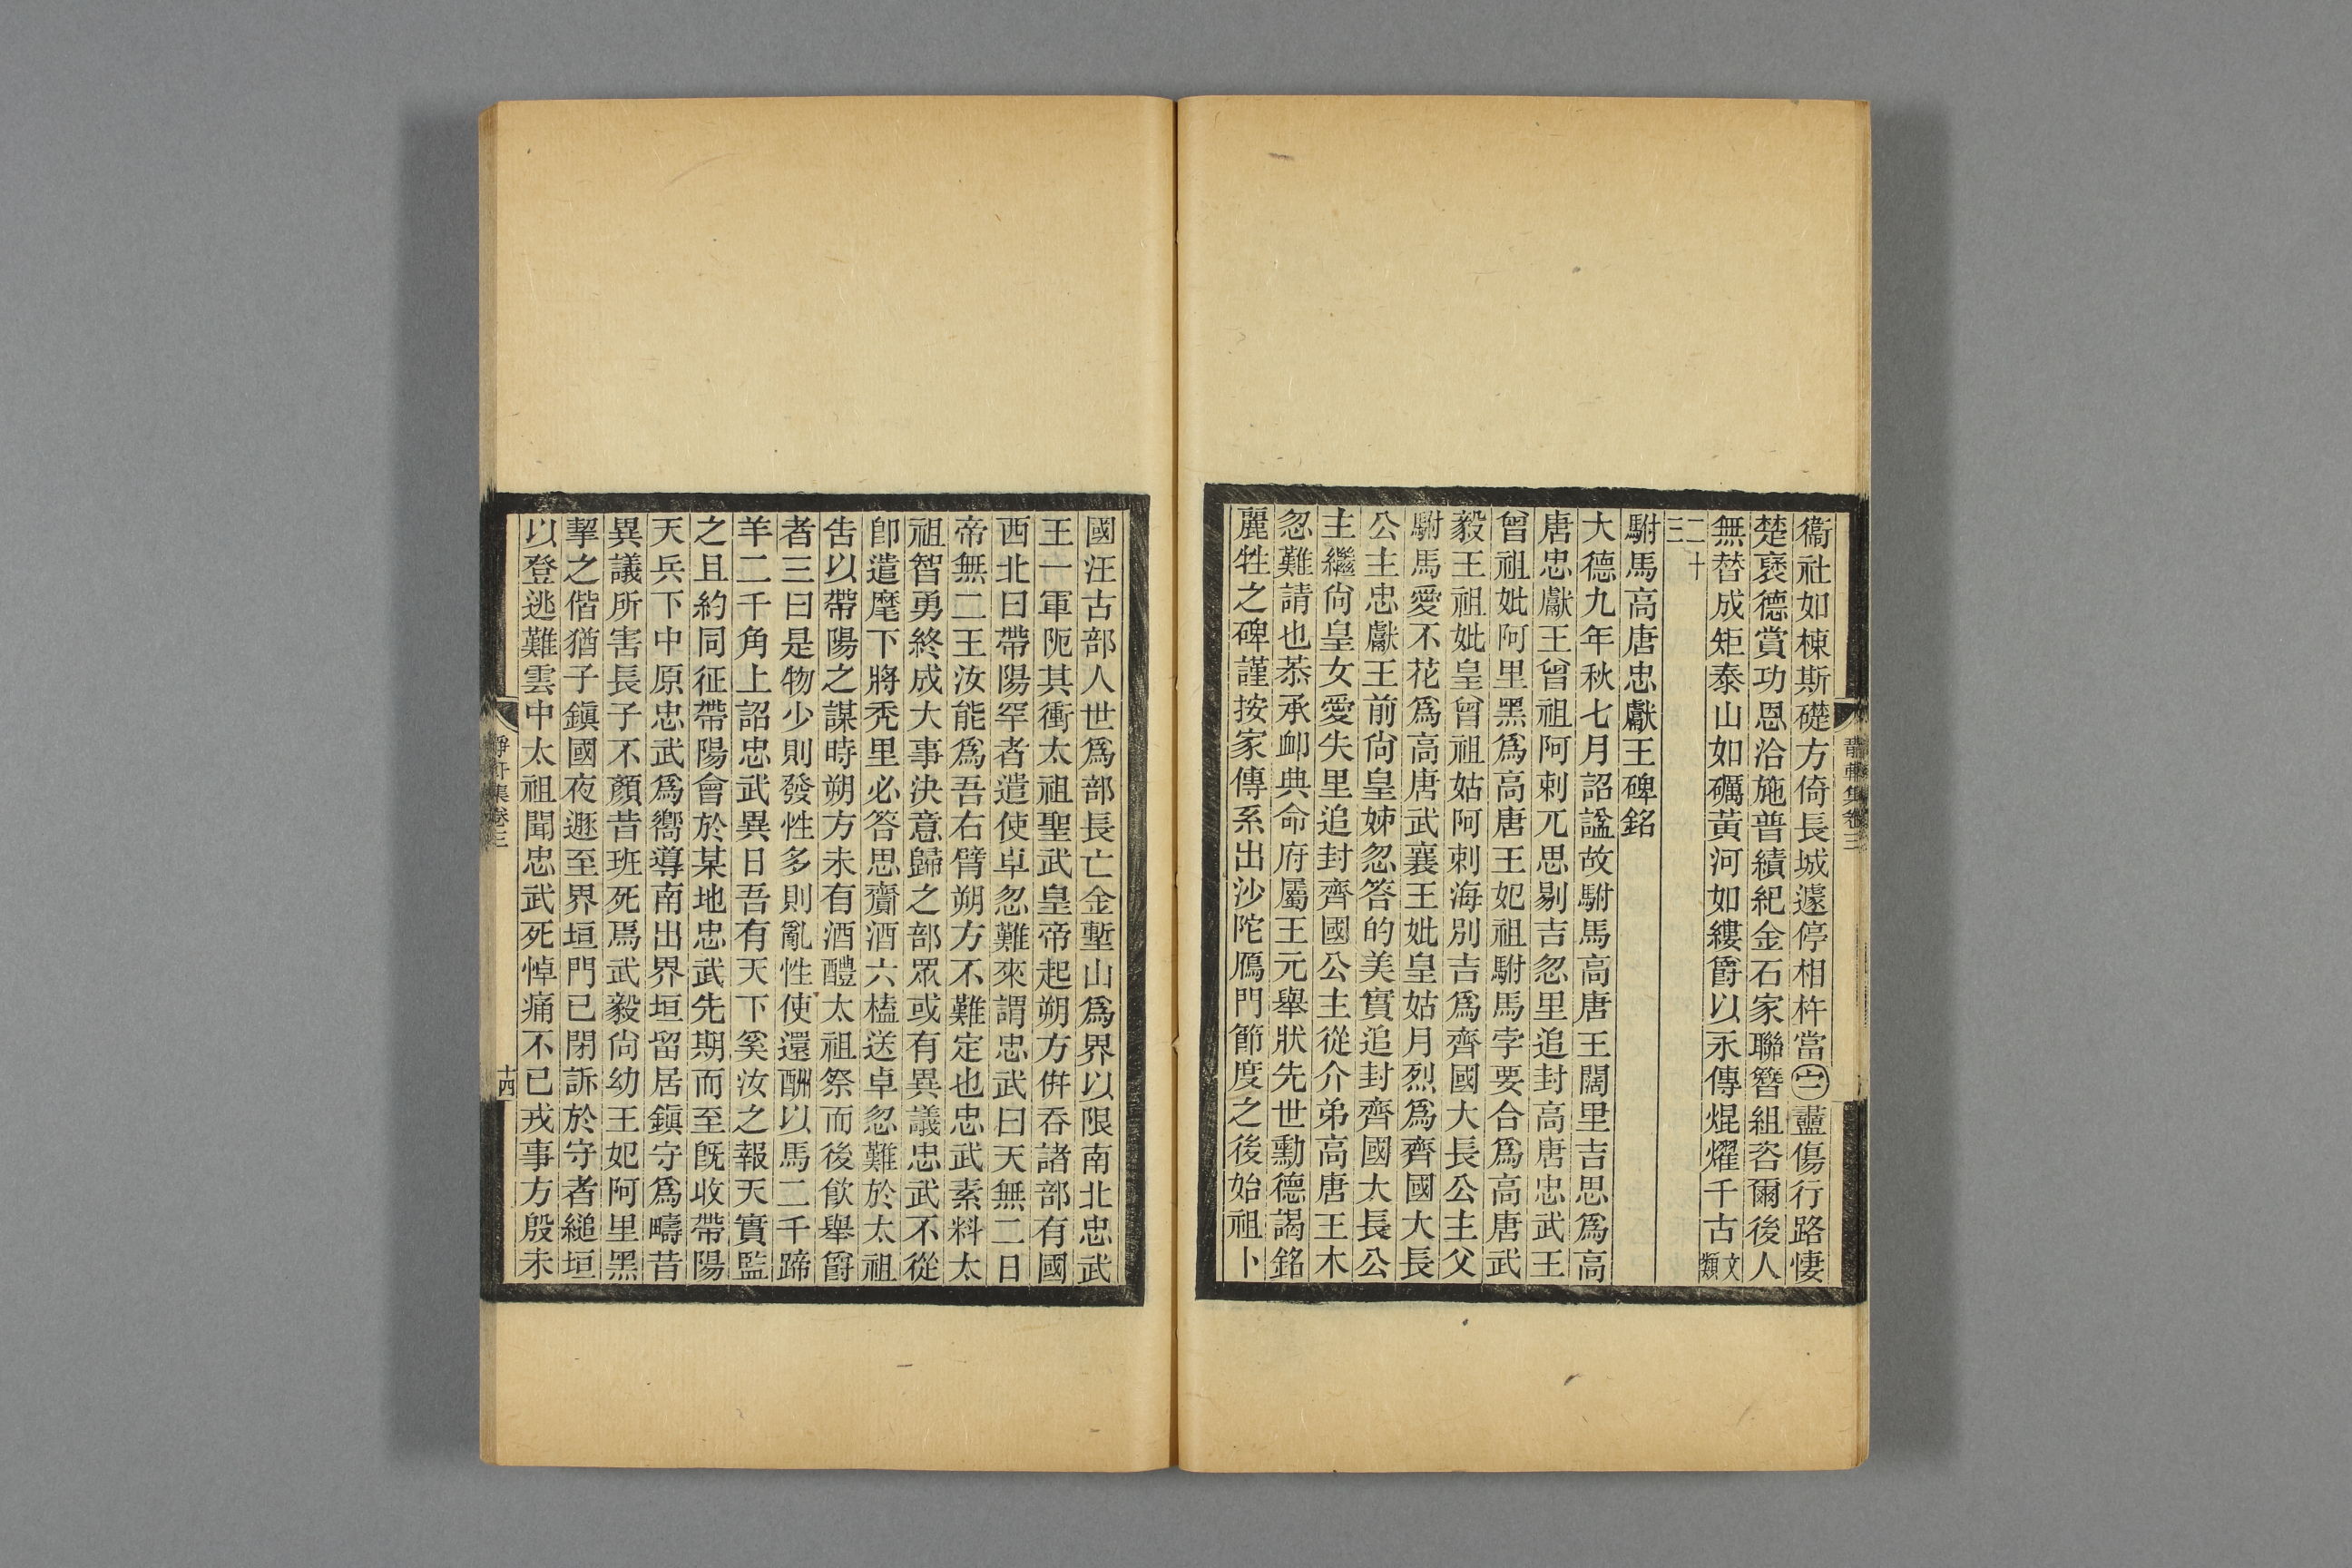 衞社如棟斯礎方倚長城遽停相杵當㊁蠶傷行路悽
楚襃德賞功恩洽施普績紀金石家聯簪組咨爾後人
無替成矩泰山如礪黃河如縷爵以永傳焜燿千古文類
二十三
駙馬高唐忠獻王碑銘
大德九年秋七月詔諡故駙馬高唐王闊里吉思爲高
唐忠獻王曾祖阿剌兀思剔吉忽里追封高唐忠武王
曾祖妣阿里黑爲高唐王妃祖駙馬孛要合爲高唐武
毅王祖妣皇曾祖姑阿剌海別吉爲齊國大長公主父
駙馬愛不花爲高唐武襄王妣皇姑月烈爲齊國大長
公主忠獻王前尙皇姊忽答的美實追封齊國大長公
主繼尙皇女愛失里追封齊國公主從介弟高唐王木
忽難請也恭承卹典命府屬王元舉狀先世勳德謁銘
麗牲之碑謹按家傳系出沙陀鴈門節度之後始祖卜
國汪古部人世爲部長亡金塹山爲界以限南北忠武
王一軍阨其衝太祖聖武皇帝起朔方併吞諸部有國
西北曰帶陽罕者遣使卓忽難來謂忠武曰天無二日
帝無二王汝能爲吾右臂朔方不難定也忠武素料太
祖智勇終成大事決意歸之部眾或有異議忠武不從
卽遣麾下將禿里必答思齎酒六榼送卓忽難於太祖
告以帶陽之謀時朔方未有酒醴太祖祭而後飮舉爵
者三曰是物少則發性多則亂性使還酬以馬二千蹄
羊二千角上詔忠武異日吾有天下奚汝之報天實監
之且約同征帶陽會於某地忠武先期而至旣收帶陽
天兵下中原忠武爲嚮導南出界垣留居鎭守爲疇昔
異議所害長子不顏昔班死焉武毅尙幼王妃阿里黑
挈之偕猶子鎭國夜遯至界垣門已閉訴於守者縋垣
以登逃難雲中太祖聞忠武死悼痛不已戎事方殷未
靜軒集卷三
十四